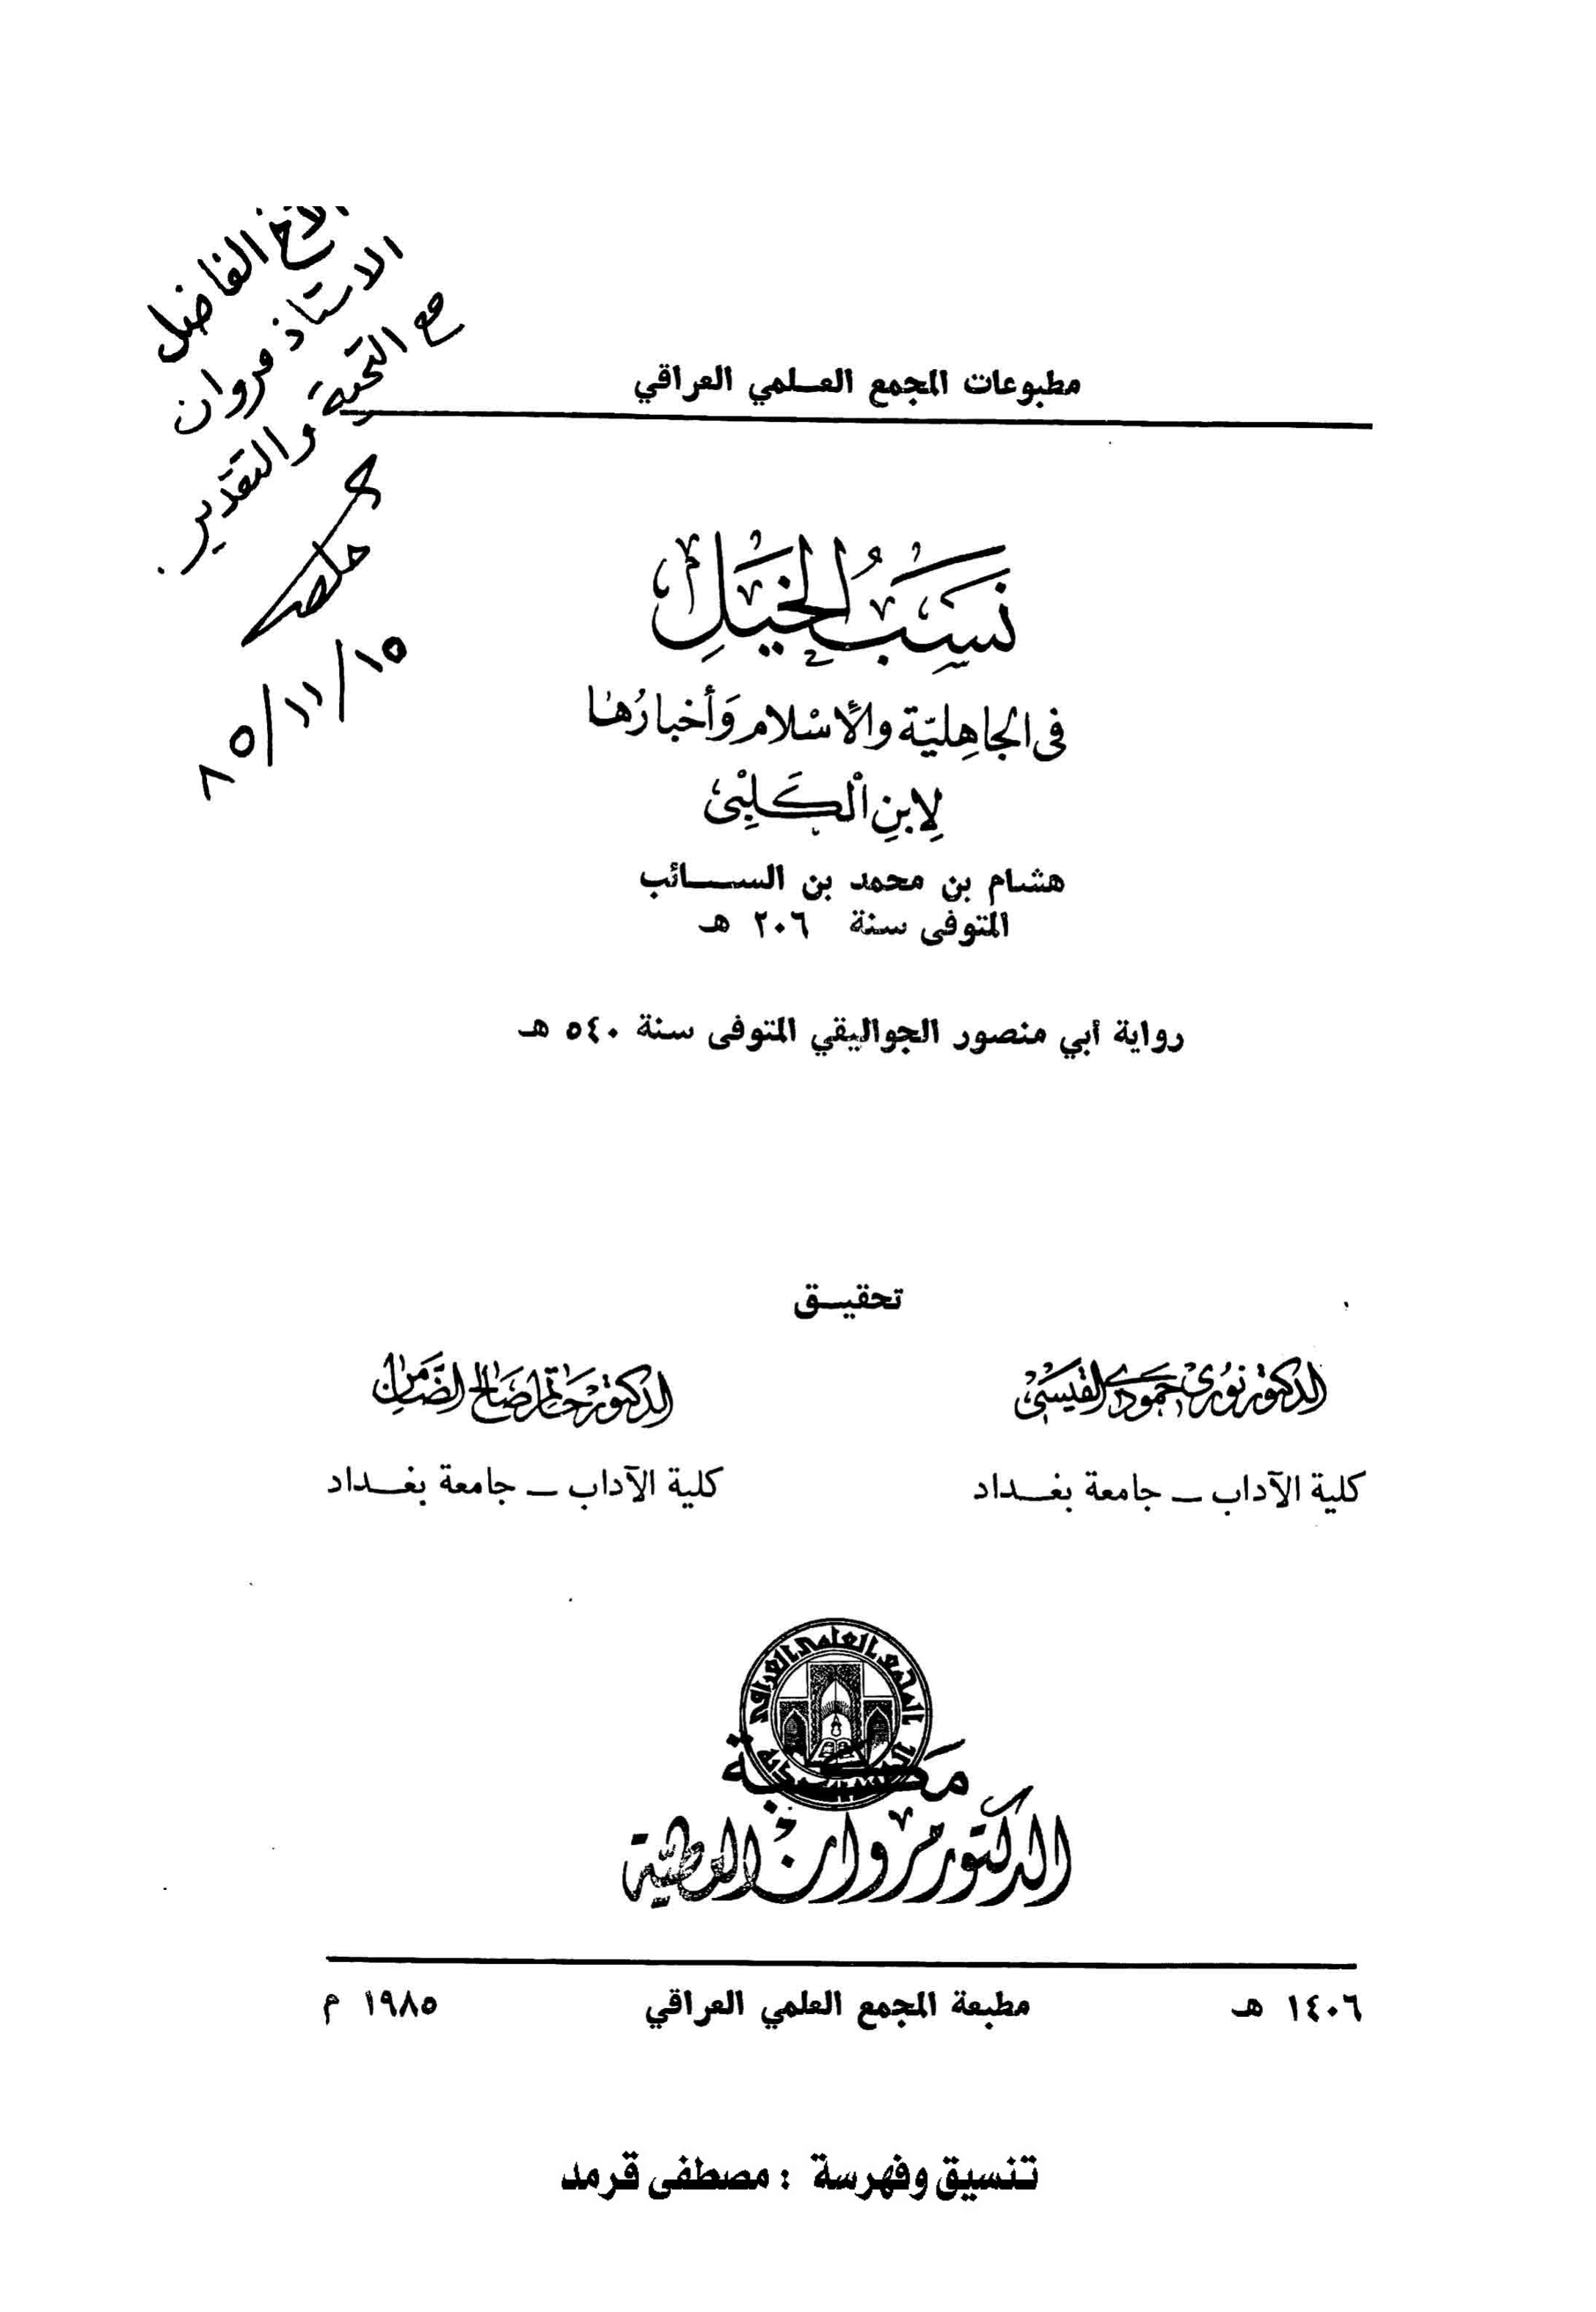 الأخ الفاضل
الاستاذ مروان
مع التحية والتقدير.
٨٥/١١/١٥
مطبوعات المجمع العلمي العراقي
نَسَبُ الخَيْلِ
في الجاهِليّة والإسْلام وَأخبارُها
لِابنِ الْكَلْبِيّ
هشام بن محمد بن السائب
المتوفى سنة ٢٠٦ هـ
رواية أبي منصور الجواليقي المتوفى سنة ٥٤٠ هـ
تحقيق
الدكتور نوري حمودي القيسي
الدكتور حاتم صالح الضامن
كلية الآداب – جامعة بغداد
كلية الآداب – جامعة بغداد
المجمع العلمي العراقي
مكتبة
الدكتور مروان العطية
١٤٠٦ هـ مطبعة المجمع العلمي العراقي ١٩٨٥ م
تنسيق وفهرسة : مصطفى قرمد